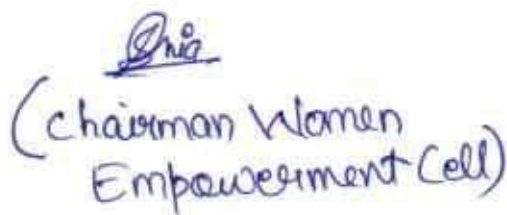 (Chairman Women
Empowerment Cell)